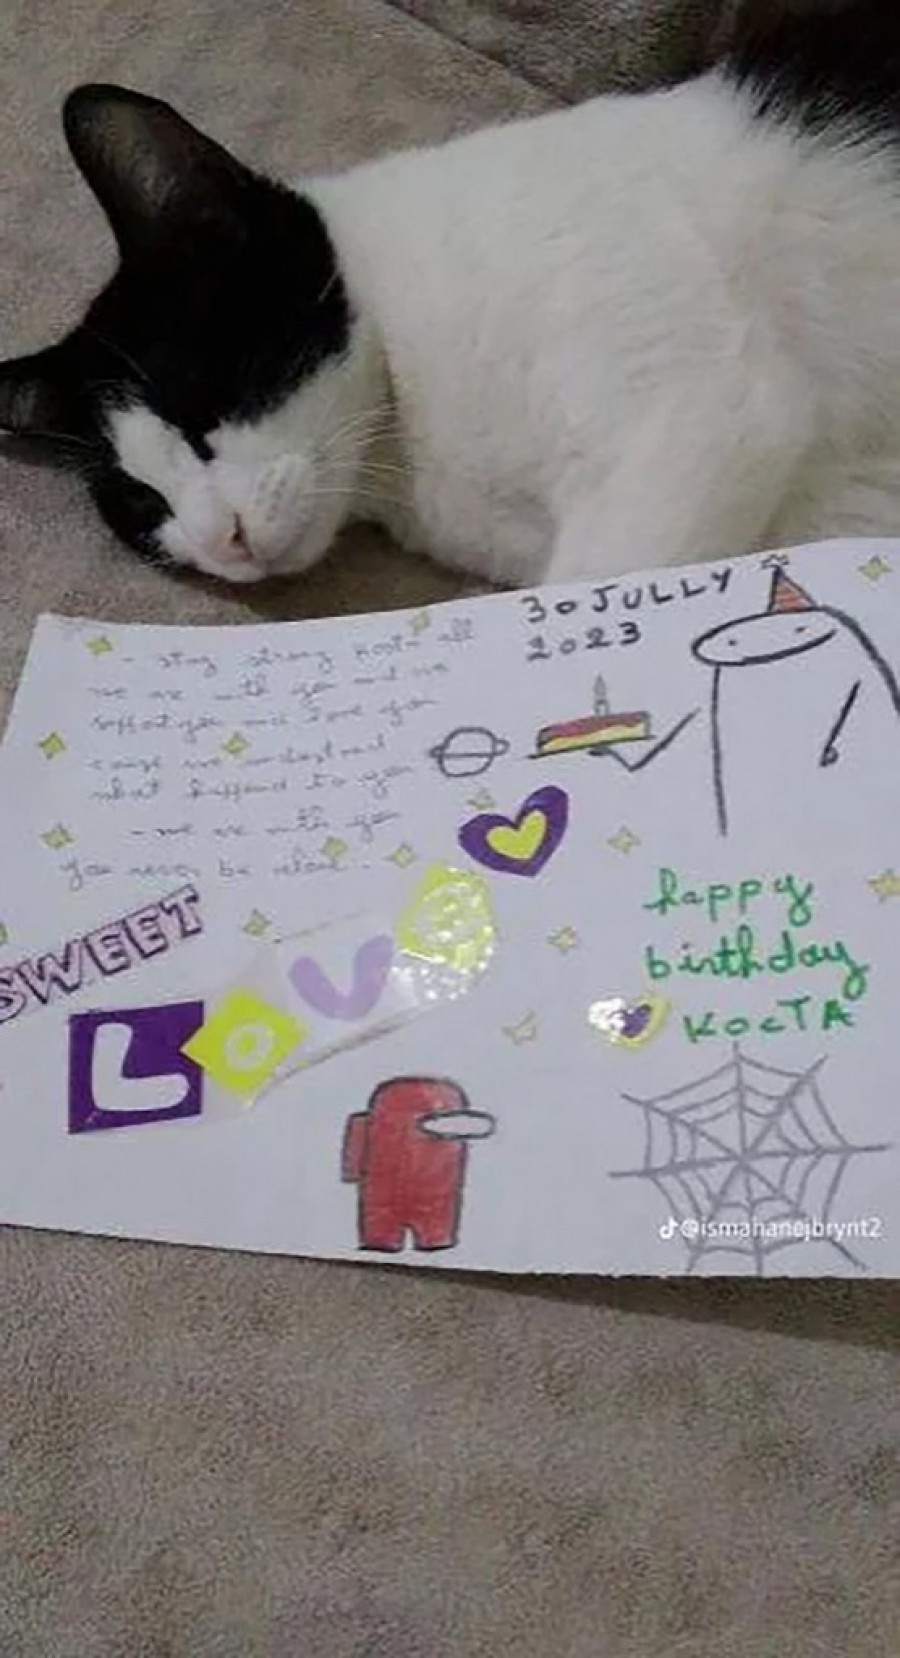 30 JULLY
2023
- stay strong kosta all
we are with you and we
support you and love you
cause we understand
what happend to you
- we are with you
you never be alone.
SWEET
LOVE
happy
birthday
KOCTA
@ismahanejbrynt2